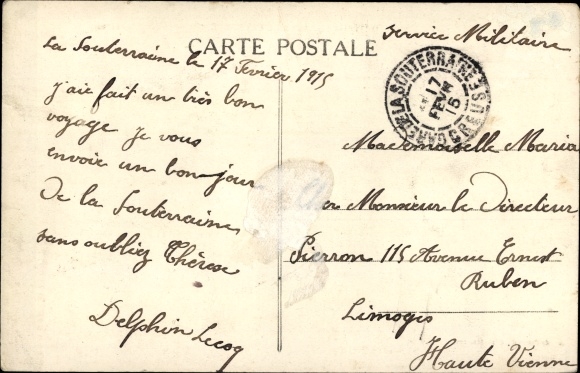 CARTE POSTALE
La Souterraine le 17 Fevrier 1915
J'aie fait un très bon
voyage je vous
envoie un bonjour
De la Souterraine
sans oubliez Thérèse
Delphin Lecoq
Service Militaire
GARE DE LA SOUTERRAINE CREUSE
17
FEVR
15
Mademoiselle Maria
Monsieur le Directeur
Pierron 115 Avenue Ernest
Ruben
Limoges
Haute Vienne